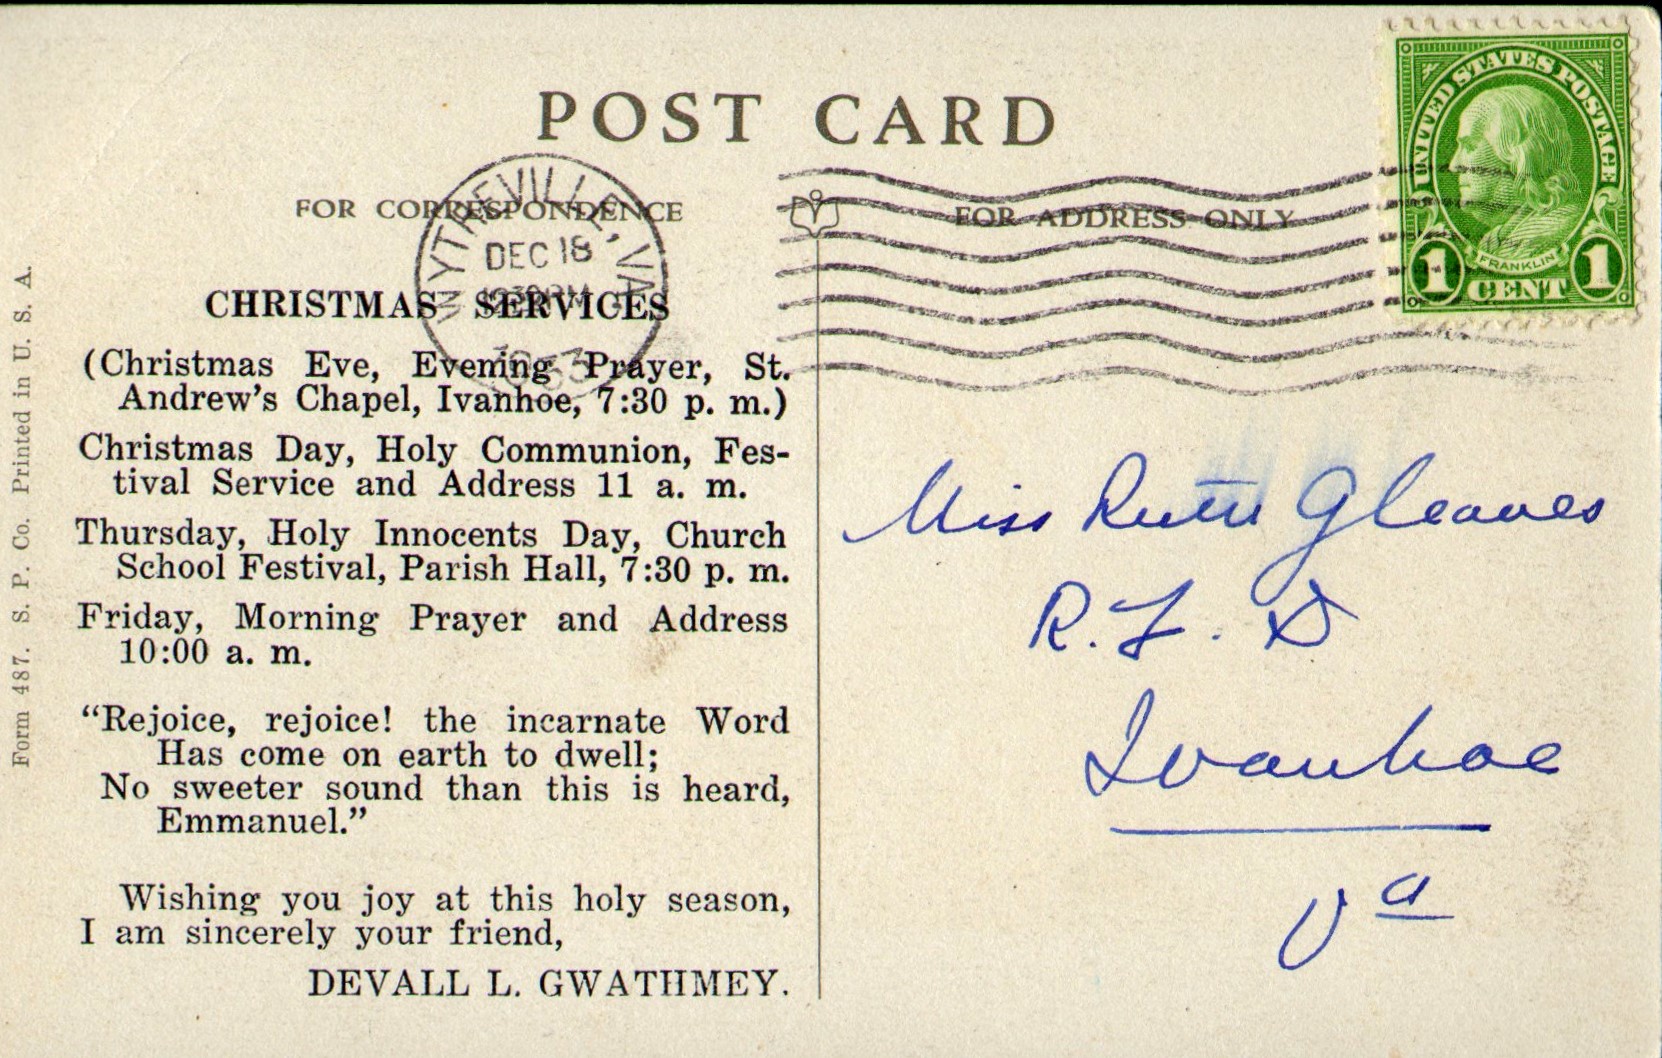 POST CARD
FOR CORRESPONDENCE
FOR ADDRESS ONLY
WYTHEVILLE, VA.
DEC 18
1933
UNITED STATES POSTAGE
FRANKLIN
1 CENT 1
CHRISTMAS SERVICES
(Christmas Eve, Evening Prayer, St.
Andrew's Chapel, Ivanhoe, 7:30 p. m.)
Christmas Day, Holy Communion, Fes-
tival Service and Address 11 a. m.
Thursday, Holy Innocents Day, Church
School Festival, Parish Hall, 7:30 p. m.
Friday, Morning Prayer and Address
10:00 a. m.
"Rejoice, rejoice! the incarnate Word
Has come on earth to dwell;
No sweeter sound than this is heard,
Emmanuel."
Wishing you joy at this holy season,
I am sincerely your friend,
DEVALL L. GWATHMEY.
Form 487. S. P. Co. Printed in U. S. A.
Miss Ruth Gleaves
R. F. D
Ivanhoe
Va